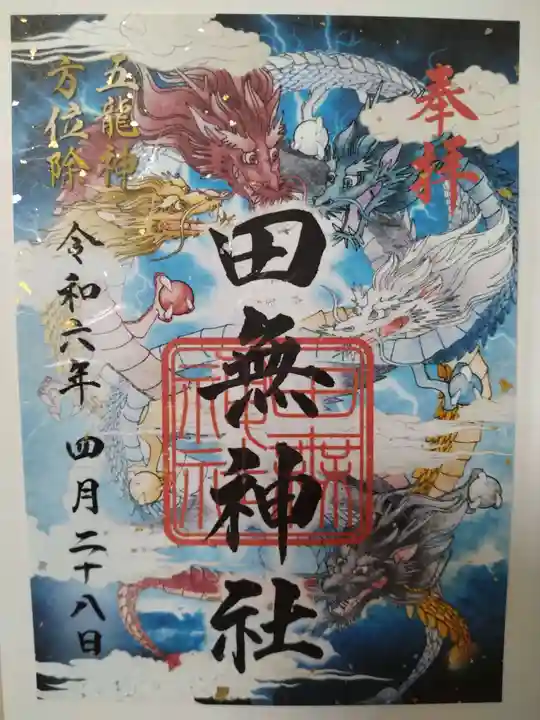 奉拝
田無神社
五龍神
方位除
令和六年 四月二十八日